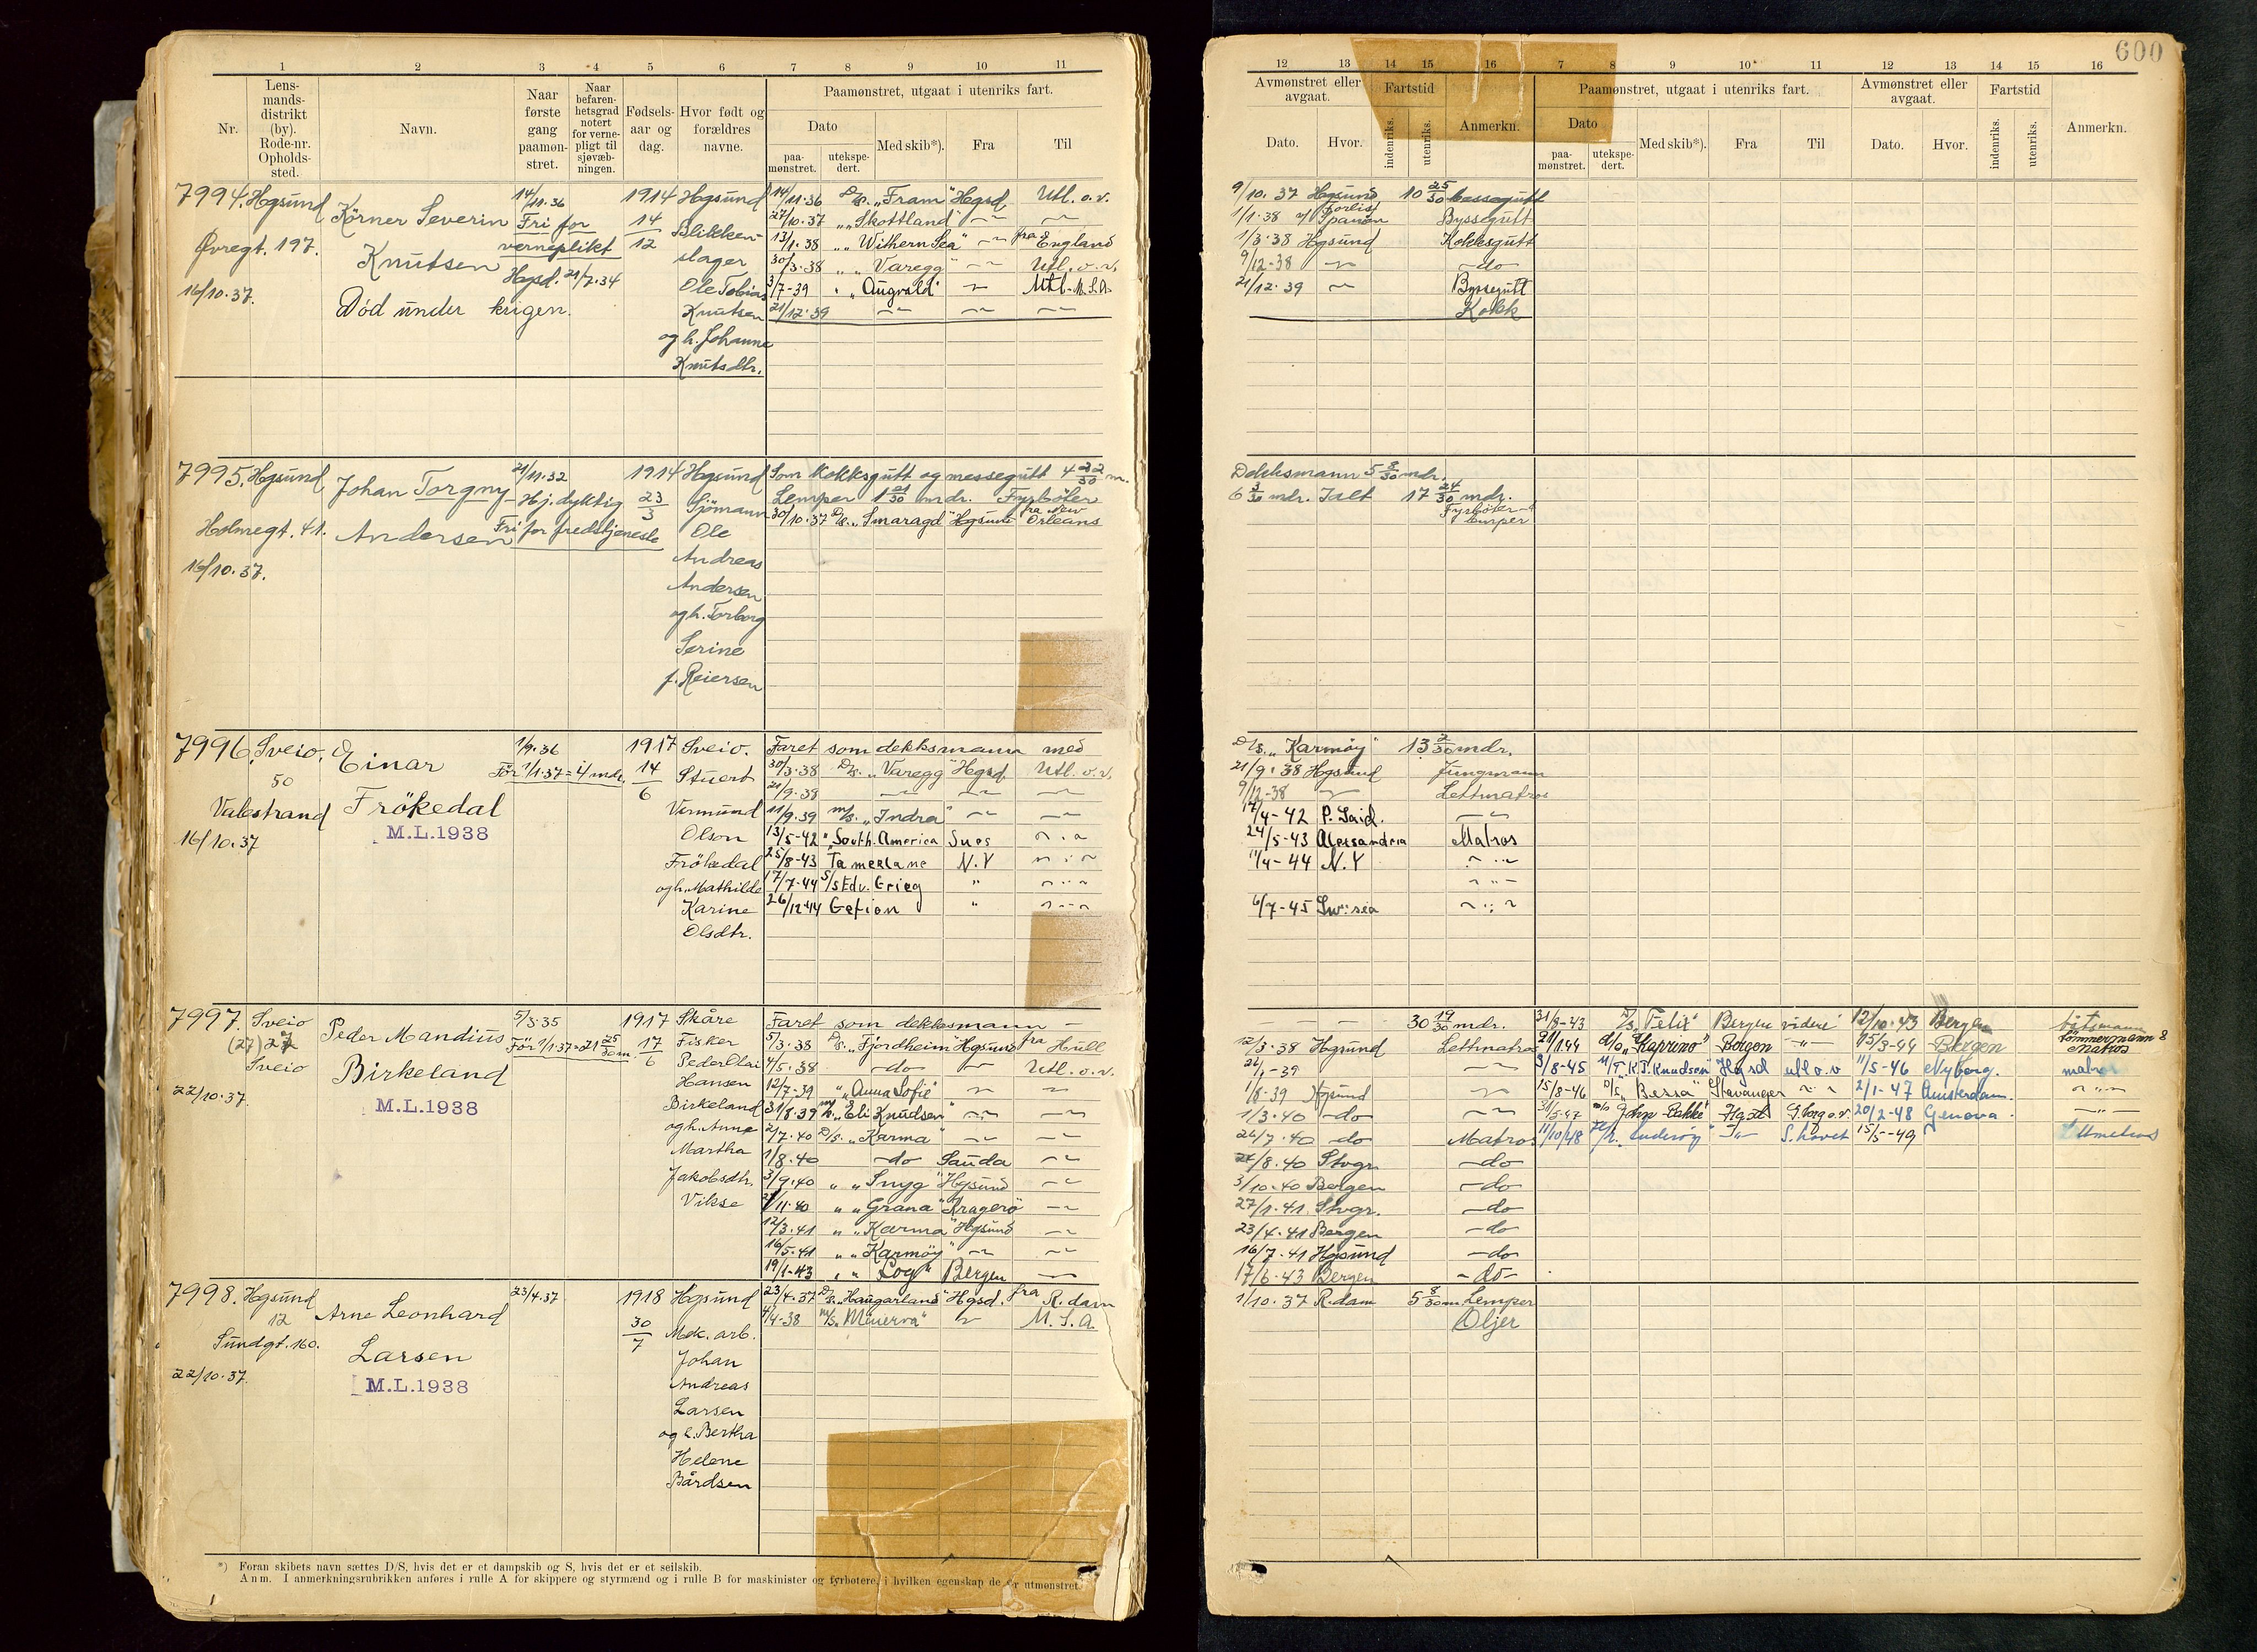 600
1 2 3 4 5 6 7 8 9 10 11
Nr.
Lens-
mands-
distrikt
(by).
Rode-nr.
Opholds-
sted.
Navn.
Naar
første
gang
paamøn-
stret.
Naar
befaren-
hetsgrad
notert
for verne-
pligt til
sjøvæb-
ningen.
Fødsels-
aar og
dag.
Hvor født og
forældres
navne.
Paamønstret, utgaat i utenriks fart.
Dato
paa-
mønstret.
utekspe-
dert.
Med skib*).
Fra
Til
7994. Hgsund
Øvregt. 197.
16/10.37.
Körner Severin
Knutsen
Død under krigen.
14/11.36
Fri for
verneplikt
Hgsd. 21/7.34
1914
14
12
Hgsund
Blikken-
slager
Ole Tobias
Knutsen
og h. Johanne
Knutsdtr.
14/11.36 D/s. "Fram" Hgsd. Utl. o.v.
27/10.37 " "Skottland" — —
13/1.38 " "Withern Sea" — fra England
30/3.38 " "Varegg" — Utl. o.v.
3/7-39 " "Augvald" — Utl. U.S.A.
21/12.39 — — —
7995. Hgsund
Holmegt. 41.
16/10.37.
Johan Torgny
Andersen
21/11.32
Hj. dyktig
Fri for fredstjeneste
1914
23
3
Hgsund
Sjömann
Ole
Andreas
Andersen
og h. Torborg
Serine
f. Reiersen
Som kokksgutt og messegutt 4 22/30 m.
Lemper 1 21/30 mdr. Fyrböter
30/10.37 D/s. "Smaragd" Hgsund fra New Orleans
7996. Sveio.
50
Valestrand
16/10.37
Einar
Frökedal
M.L.1938
1/9.36
För 1/1.37 = 4 mdr.
1917
14
6
Sveio.
Stuert
Vermund
Olson
Frökedal
og h. Mathilde
Karine
Olsdtr.
Faret som dekksmann med
30/3.38 D/s. "Varegg" Hgsd. Utl. o.v.
21/9.38 — — —
11/9.39 m/s. "Indra" — —
13/5-42 " South. America Sues — " —
25/8-43 Tamerlane N.Y — " —
17/7-44 S/s Edv. Grieg " — " —
26/12-44 Gefion " — " —
7997. Sveio
(27) 27
Sveio
22/10.37.
Peder Mandius
Birkeland
M.L.1938
5/3.35
För 1/1.37 = 21 25/30 m.
1917
17
6
Skåre
Fisker
Peder Elai
Hansen
Birkeland
og h. Anne
Martha
Jakobsdtr.
Vikse
Faret som dekksmann —
5/3.38 D/s. "Fjordheim" Hgsund fra Hull
4/5.38 — do — Utl. o.v.
12/7-39 " "Anna Sofie" — —
31/8.39 m/s. "Eli Knudsen" — —
2/7.40 D/s. "Karma" — —
1/8.40 — do Sauda —
3/9.40 " "Snyg" Hgsund —
2/11.40 " "Grana" Kragerö —
12/3.41 " "Karma" Hgsund —
16/5.41 " "Karmöy" — —
19/1-43 " " Log" Bergen —
7998. Hgsund
12
Sundgt. 160.
22/10.37.
Arne Leonhard
Larsen
M.L.1938
23/4.37
1918
30
7
Hgsund
Mek. arb.
Johan
Andreas
Larsen
og h. Bertha
Helene
Bårdsen
23/4.37 D/s. "Haugarland" Hgsd. fra R.dam
4/4-38 m/s. "Minerva" — U.S.A.
*) Foran skibets navn sættes D/S, hvis det er et dampskib og S, hvis det er et seilskib.
Anm. I anmerkningsrubrikken anføres i rulle A for skippere og styrmænd og i rulle B for maskinister og fyrbøtere, i hvilken egenskap de er utmønstret
12 13 14 15 16 7 8 9 10 11 12 13 14 15 16
Avmønstret eller
avgaat.
Dato. Hvor.
Fartstid
indenriks. utenriks.
Anmerkn.
Paamønstret, utgaat i utenriks fart.
Dato
paa-
mønstret.
utekspe-
dert.
Med skib*).
Fra
Til
Avmønstret eller
avgaat.
Dato. Hvor.
Fartstid
indenriks. utenriks.
Anmerkn.
9/10.37 Hgsund 10 25/30 Messegutt
1/1.38 Forlist v/ Spanien Byssegutt
1/3.38 Hgsund Kokksgutt
9/12-38 — — do —
21/12.39 — Byssegutt
Kokk
Dekksmann 5 8/30 mdr.
6 3/30 mdr. Ialt 17 24/30 mdr.
Fyrböter-
lemper
D/s. "Karmöy" 13 2/30 mdr.
21/9.38 Hgsund Jungmann
9/12-38 — Lettmatros
17/4-42 P. Said. — " —
24/5-43 Alessandria Matros
11/4-44 N.Y — " —
— " —
6/7-45 Sw:sea — " —
— — — 30 19/30 mdr.
12/3.38 Hgsund Lettmatros
26/1-39 — —
1/8.39 Hgsund —
1/3.40 — do —
26/7.40 — do Matros
24/8.40 Stvgr. — do —
3/10.40 Bergen — do —
27/1.41. Stvgr. — do
23/4.41 Bergen — do
16/7.41 Hgsund — do
17/6.43 Bergen — do —
31/8-43 D/s. "Felix" Bergen videre 12/10.43 Bergen båtsmann
21/1.44 d/o "Kaprino" Bergen — " — 15/3-44 Bergen tömmermann & Matros
3/8-45 M/T "K.J. Knudsen" Hgsd utl o.v 11/5-46 Nyborg. matros
15/8-46 D/s "Bessa" Stavanger — " — 2/1-47 Amsterdam. — " —
31/5-47 John Bakke Hgsd G.borg o.v. 20/2-48 Genova — " —
11/10/48 — " — S. havet 15/5-49
1/10.37 R.dam 5 8/30 m. Lemper
Oljer